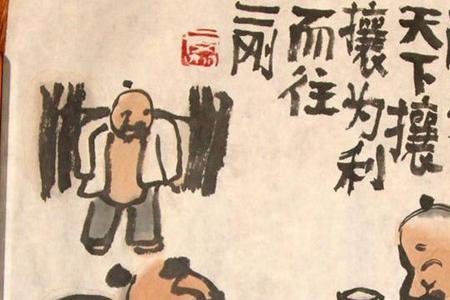 天下攘
攘为利
而往
二刚